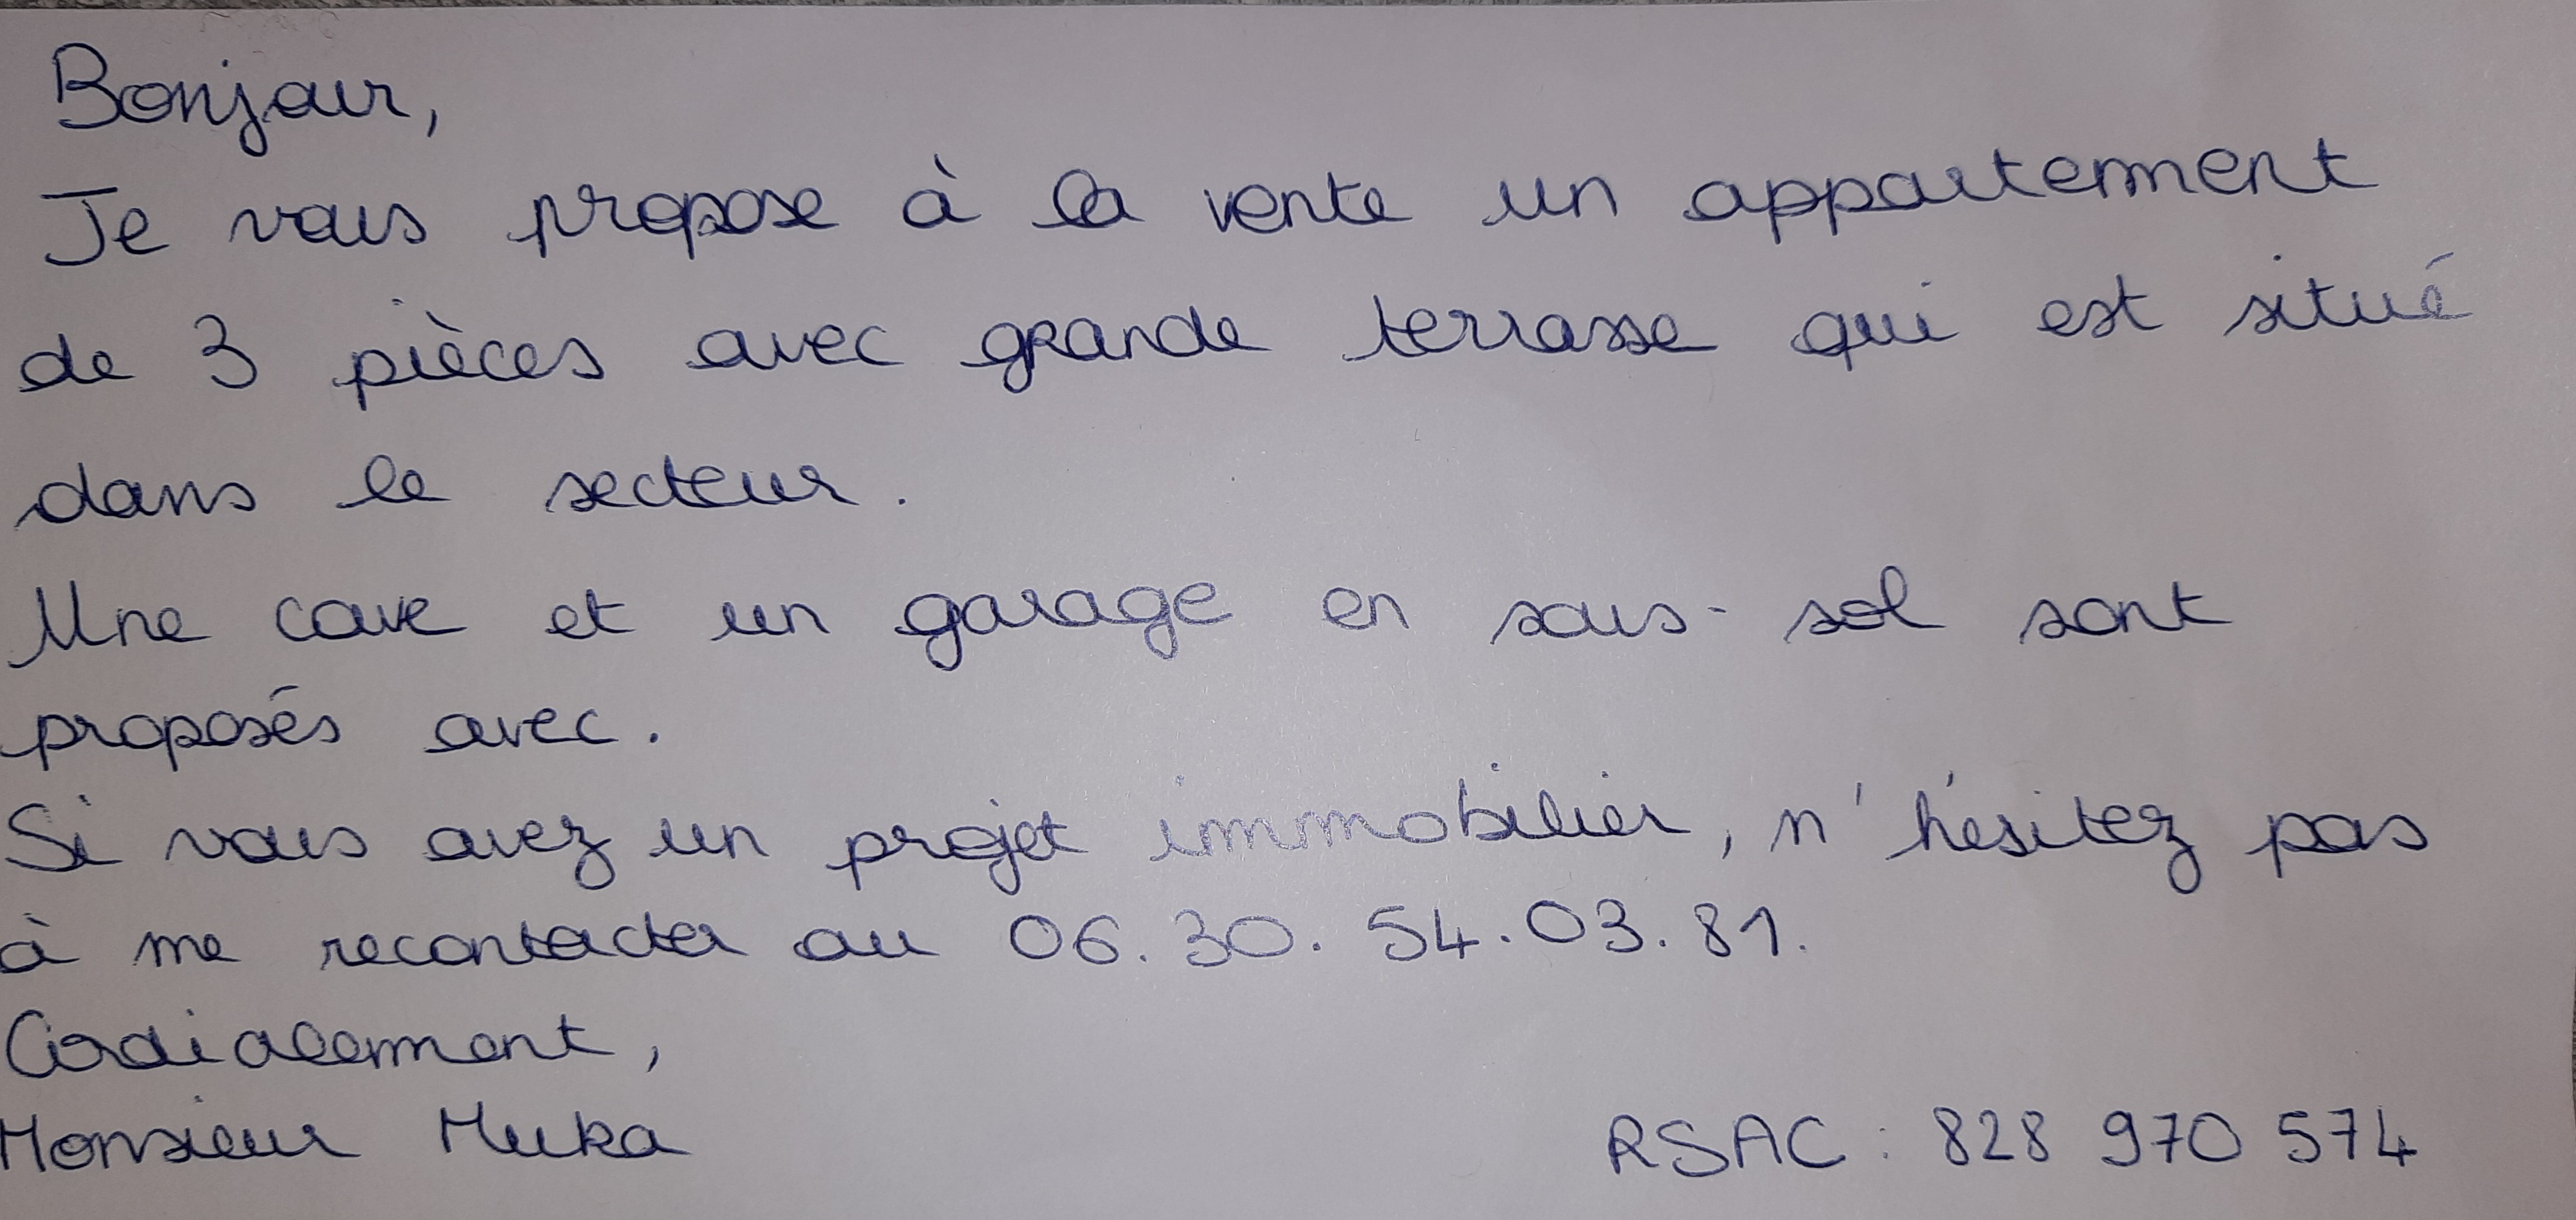 Bonjour,
Je vous propose à la vente un appartement
de 3 pièces avec grande terrasse qui est situé
dans le secteur.
Une cave et un garage en sous-sol sont
proposés avec.
Si vous avez un projet immobilier, n'hésitez pas
à me recontacter au 06.30.54.03.81.
Cordialement,
Monsieur Muka
RSAC : 828 970 574